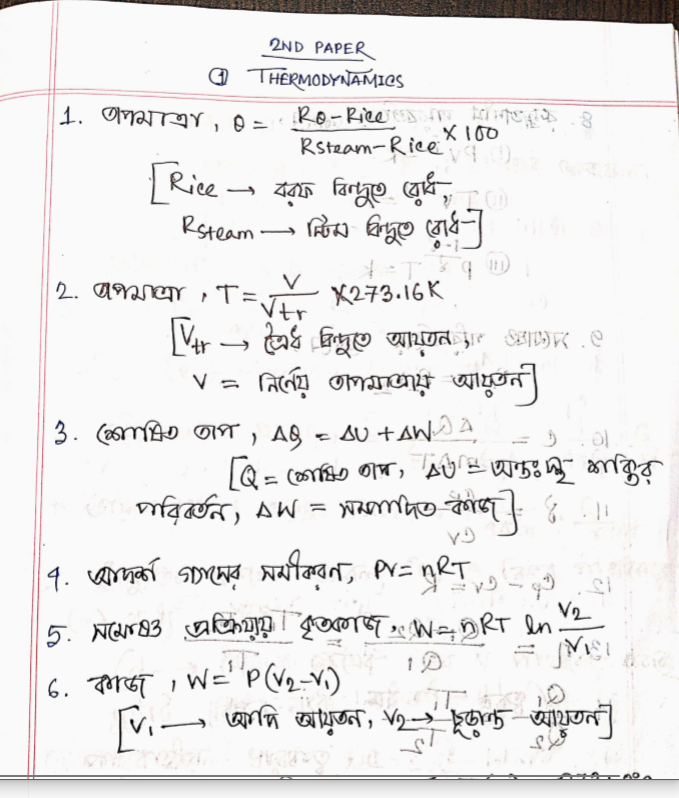 2ND PAPER
① THERMODYNAMICS
1. তাপমাত্রা, θ = (Rθ - Rice) / (Rsteam - Rice) × 100
[Rice → বরফ বিন্দুতে রোধ,
Rsteam → স্টিম বিন্দুতে রোধ]
2. তাপমাত্রা, T = V / Vtr × 273.16K
[Vtr → ত্রৈধ বিন্দুতে আয়তন,
V = নির্ণেয় তাপমাত্রায় আয়তন]
3. শোষিত তাপ, ΔQ = ΔU + ΔW
[Q = শোষিত তাপ, ΔU = অন্তঃস্থ শক্তির
পরিবর্তন, ΔW = সম্পাদিত কাজ]
4. আদর্শ গ্যাসের সমীকরণ, PV = nRT
5. সমোষ্ণ প্রক্রিয়ায় কৃতকাজ, W = nRT ln V2 / V1
6. কাজ, W = P(V2 - V1)
[V1 → আদি আয়তন, V2 → চূড়ান্ত আয়তন]